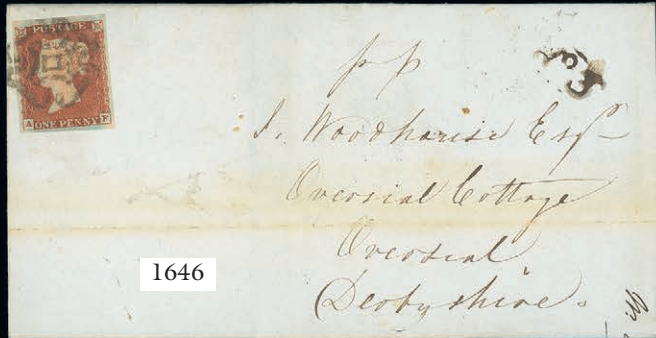 POSTAGE
ONE PENNY
A F
pp
J. Woodhouse Esqr
Overseal Cottage
Overseal
Derbyshire.
1646